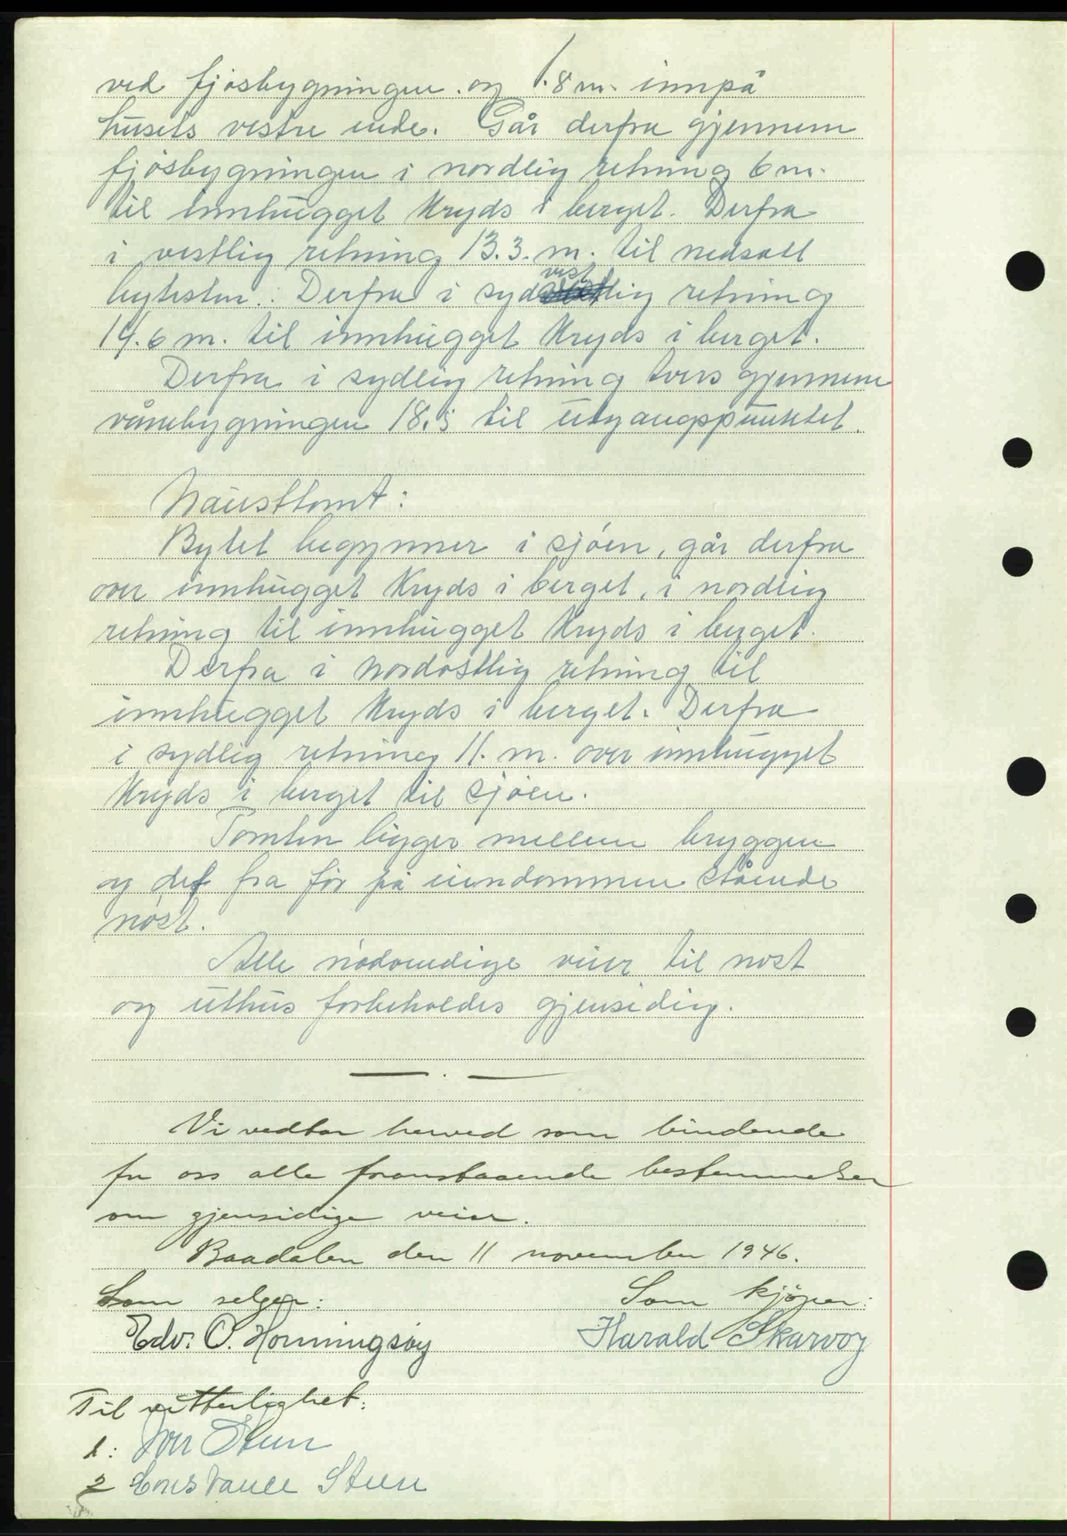 ved fjøsbygningen. og 1.8 m. innpå
husets vestre ende. Går derfra gjennem
fjøsbygningen i nordlig retning 6 m.
til innhugget kryds i berget. Derfra
i vestlig retning 13.3. m. til nedsatt
bytesten. Derfra i sydvestlig retning
19.6 m. til innhugget kryds i berget.
Derfra i sydlig retning tvers gjennem
våningbygningen 18.5 til utgangspunktet.
Nausttomt:
Bytet begynner i sjøen, går derfra
over innhugget kryds i berget, i nordlig
retning til innhugget kryds i berget.
Derfra i nordøstlig retning til
innhugget kryds i berget. Derfra
i sydlig retning 11. m. over innhugget
kryds i berget til sjøen.
Tomten ligger mellem bryggen
og det fra før på eiendommen stående
nøst.
Alle nødvendige veier til nøst
og uthus forbeholdes gjensidig.
Vi vedtar herved som bindende
for oss alle franstaaende bestemmelser
om gjensidige veier.
Baadalen den 11 november 1946.
Som selger: Som kjöper:
Edv. O. Honningsøy Harald Skarvøy
Til vitterlighet:
1: Iver Steen
2 Constance Steen